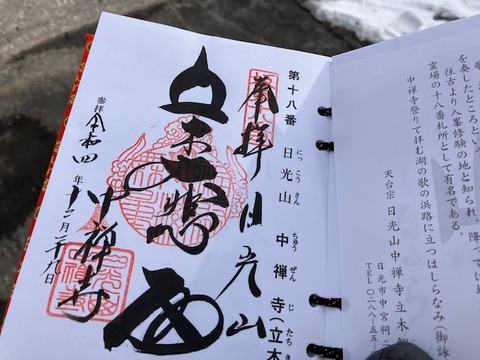 を奏したところとい
往古より入峯修験の地と知られ、降って
霊場の十八番札所として有名である。
中禅寺登りて拝む湖の歌の浜路に立つはしらなみ(御詠
天台宗 日光山中禅寺立木
日光市中宮祠二
TEL〇二八八-五五-
第十八番 日光山 中禅寺(立木
にっこうさん ちゅうぜんじ たちき
奉拝 日光山
立木
中禅寺
参拝 令和四年十二月二十九日